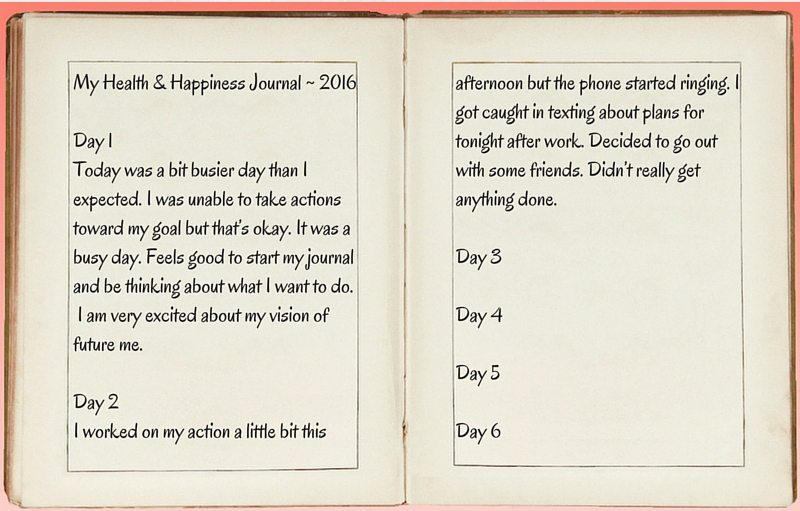 My Health & Happiness Journal ~ 2016
Day 1
Today was a bit busier day than I
expected. I was unable to take actions
toward my goal but that's okay. It was a
busy day. Feels good to start my journal
and be thinking about what I want to do.
I am very excited about my vision of
future me.
Day 2
I worked on my action a little bit this
afternoon but the phone started ringing. I
got caught in texting about plans for
tonight after work. Decided to go out
with some friends. Didn't really get
anything done.
Day 3
Day 4
Day 5
Day 6